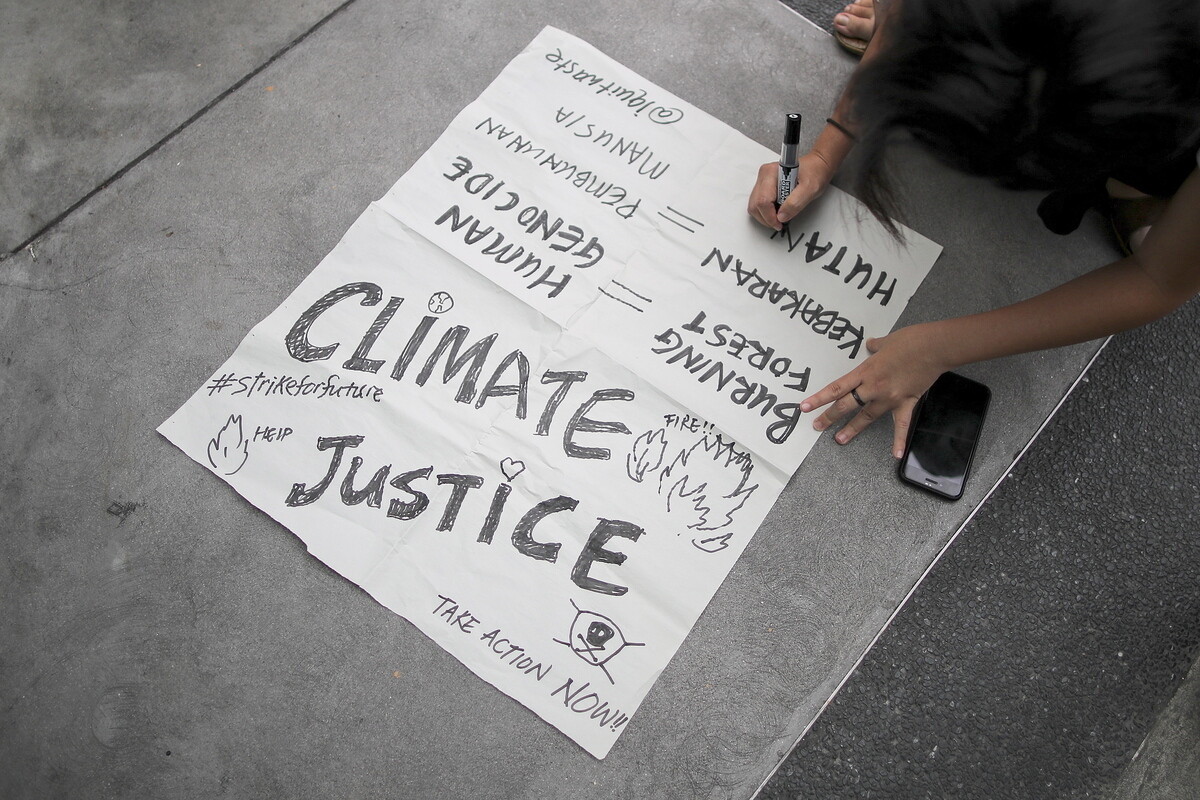 CLIMATE
#strikeforfuture
HELP
JUSTICE
FIRE!!
TAKE ACTION NOW!!
BURNING
FOREST
=
HUMAN
GENOCIDE
KEBAKARAN
HUTAN
=
PEMBUNUHAN
MANUSIA
@iquitwaste